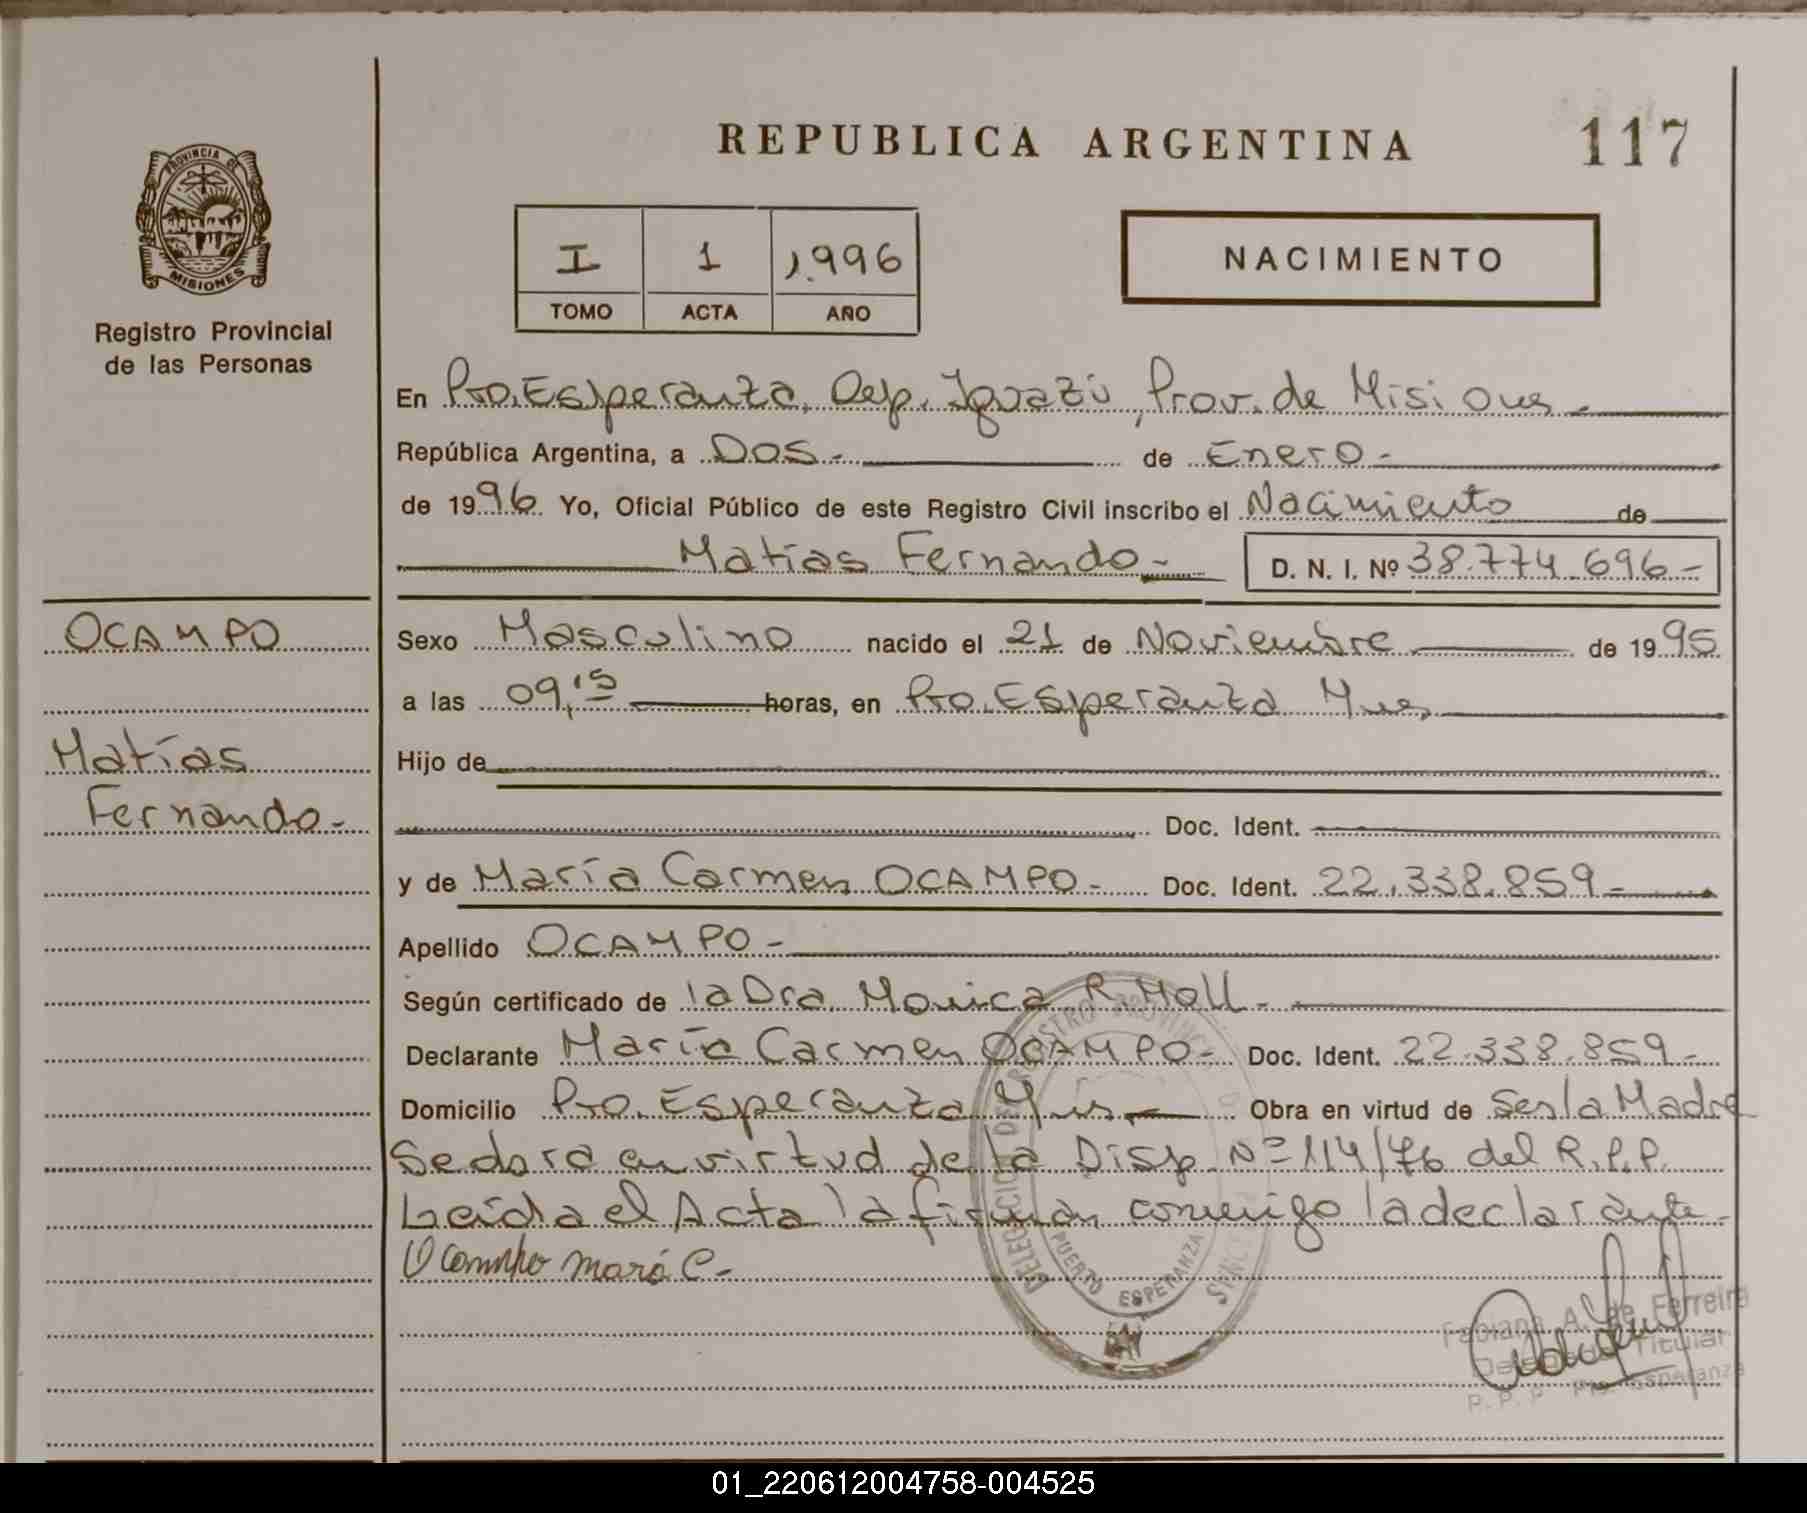 REPUBLICA ARGENTINA 117
PROVINCIA DE
MISIONES
Registro Provincial
de las Personas
I 1 1.996
TOMO ACTA AÑO
NACIMIENTO
En Pto. Esperanza, Dep. Iguazú, Prov. de Misiones.-
República Argentina, a Dos.- de Enero.-
de 1996. Yo, Oficial Público de este Registro Civil inscribo el Nacimiento de
Matías Fernando.- D. N. I. Nº 38.774.696.-
OCAMPO
Matías
Fernando.-
Sexo Masculino nacido el 21 de Noviembre de 1995
a las 09,15 horas, en Pto. Esperanza Mnes,
Hijo de
Doc. Ident.
y de María Carmen OCAMPO.- Doc. Ident. 22.338.859.-
Apellido OCAMPO.-
Según certificado de la Dra. Monica R. Holl.-
Declarante María Carmen OCAMPO.- Doc. Ident. 22.338.859.-
Domicilio Pto. Esperanza Mnes.- Obra en virtud de Ser la Madre
Se dora en virtud de la Disp. Nº 114/76 del R.P.P.
Leída el Acta la firman conmigo la declarante.-
Ocampo C.-
PUERTO ESPERANZA
Fabiana A. de Ferreira
Titular
R. P. P. Pto. Esperanza
01_220612004758-004525